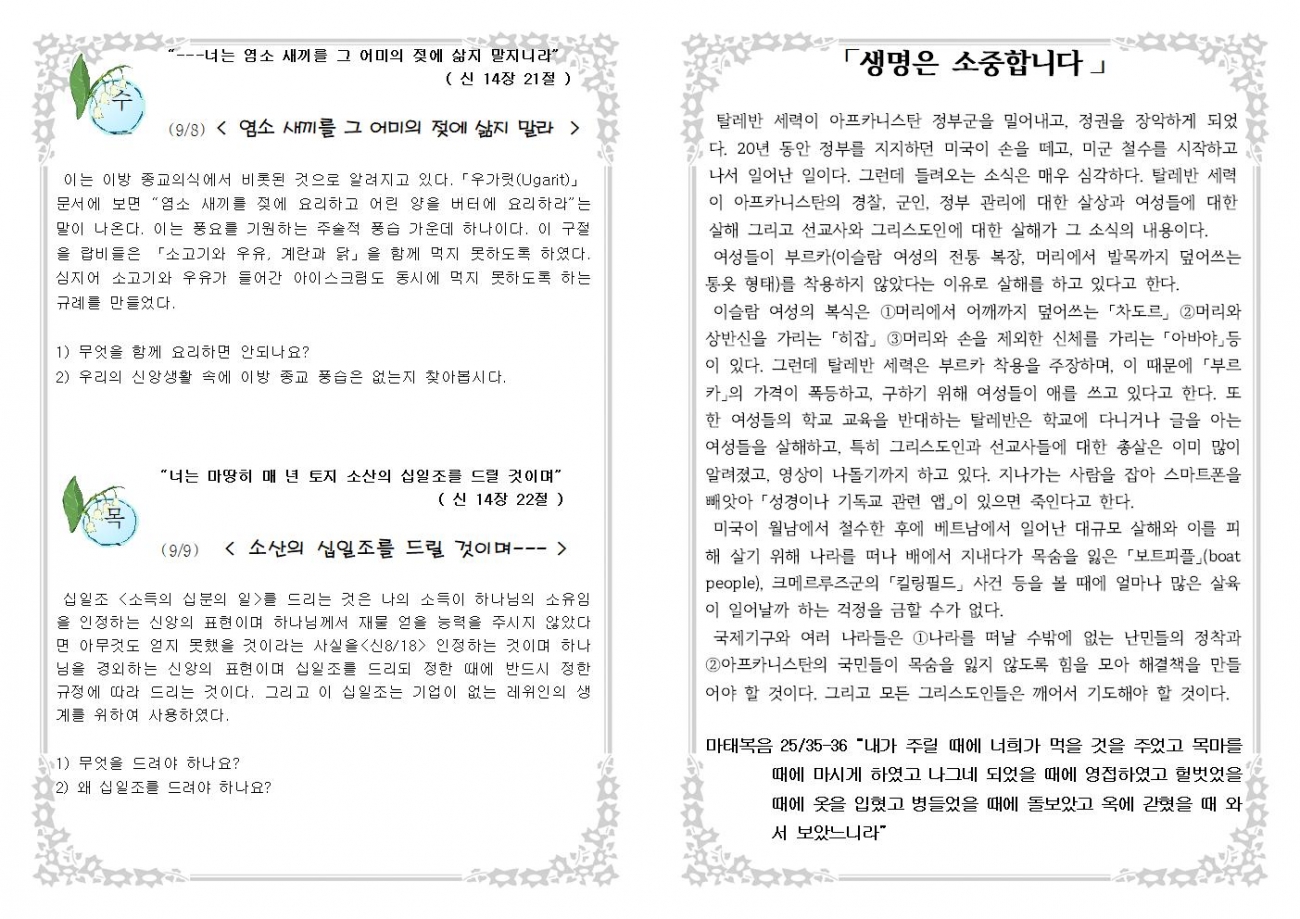 "---너는 염소 새끼를 그 어미의 젖에 삶지 말지니라"
( 신 14장 21절 )
수
(9/8) < 염소 새끼를 그 어미의 젖에 삶지 말라 >
이는 이방 종교의식에서 비롯된 것으로 알려지고 있다.「우가릿(Ugarit)」
문서에 보면 "염소 새끼를 젖에 요리하고 어린 양을 버터에 요리하라"는
말이 나온다. 이는 풍요를 기원하는 주술적 풍습 가운데 하나이다. 이 구절
을 랍비들은 「소고기와 우유, 계란과 닭」을 함께 먹지 못하도록 하였다.
심지어 소고기와 우유가 들어간 아이스크림도 동시에 먹지 못하도록 하는
규례를 만들었다.
1) 무엇을 함께 요리하면 안되나요?
2) 우리의 신앙생활 속에 이방 종교 풍습은 없는지 찾아봅시다.
"너는 마땅히 매 년 토지 소산의 십일조를 드릴 것이며"
( 신 14장 22절 )
목
(9/9) < 소산의 십일조를 드릴 것이며--- >
십일조 <소득의 십분의 일>를 드리는 것은 나의 소득이 하나님의 소유임
을 인정하는 신앙의 표현이며 하나님께서 재물 얻을 능력을 주시지 않았다
면 아무것도 얻지 못했을 것이라는 사실을<신8/18> 인정하는 것이며 하나
님을 경외하는 신앙의 표현이며 십일조를 드리되 정한 때에 반드시 정한
규정에 따라 드리는 것이다. 그리고 이 십일조는 기업이 없는 레위인의 생
계를 위하여 사용하였다.
1) 무엇을 드려야 하나요?
2) 왜 십일조를 드려야 하나요?
「생명은 소중합니다」
탈레반 세력이 아프카니스탄 정부군을 밀어내고, 정권을 장악하게 되었
다. 20년 동안 정부를 지지하던 미국이 손을 떼고, 미군 철수를 시작하고
나서 일어난 일이다. 그런데 들려오는 소식은 매우 심각하다. 탈레반 세력
이 아프카니스탄의 경찰, 군인, 정부 관리에 대한 살상과 여성들에 대한
살해 그리고 선교사와 그리스도인에 대한 살해가 그 소식의 내용이다.
여성들이 부르카(이슬람 여성의 전통 복장, 머리에서 발목까지 덮어쓰는
통옷 형태)를 착용하지 않았다는 이유로 살해를 하고 있다고 한다.
이슬람 여성의 복식은 ①머리에서 어깨까지 덮어쓰는 「차도르」 ②머리와
상반신을 가리는 「히잡」 ③머리와 손을 제외한 신체를 가리는 「아바야」등
이 있다. 그런데 탈레반 세력은 부르카 착용을 주장하며, 이 때문에 「부르
카」의 가격이 폭등하고, 구하기 위해 여성들이 애를 쓰고 있다고 한다. 또
한 여성들의 학교 교육을 반대하는 탈레반은 학교에 다니거나 글을 아는
여성들을 살해하고, 특히 그리스도인과 선교사들에 대한 총살은 이미 많이
알려졌고, 영상이 나돌기까지 하고 있다. 지나가는 사람을 잡아 스마트폰을
빼앗아 「성경이나 기독교 관련 앱」이 있으면 죽인다고 한다.
미국이 월남에서 철수한 후에 베트남에서 일어난 대규모 살해와 이를 피
해 살기 위해 나라를 떠나 배에서 지내다가 목숨을 잃은 「보트피플」(boat
people), 크메르루즈군의 「킬링필드」 사건 등을 볼 때에 얼마나 많은 살육
이 일어날까 하는 걱정을 금할 수가 없다.
국제기구와 여러 나라들은 ①나라를 떠날 수밖에 없는 난민들의 정착과
②아프카니스탄의 국민들이 목숨을 잃지 않도록 힘을 모아 해결책을 만들
어야 할 것이다. 그리고 모든 그리스도인들은 깨어서 기도해야 할 것이다.
마태복음 25/35-36 "내가 주릴 때에 너희가 먹을 것을 주었고 목마를
때에 마시게 하였고 나그네 되었을 때에 영접하였고 헐벗었을
때에 옷을 입혔고 병들었을 때에 돌보았고 옥에 갇혔을 때 와
서 보았느니라"